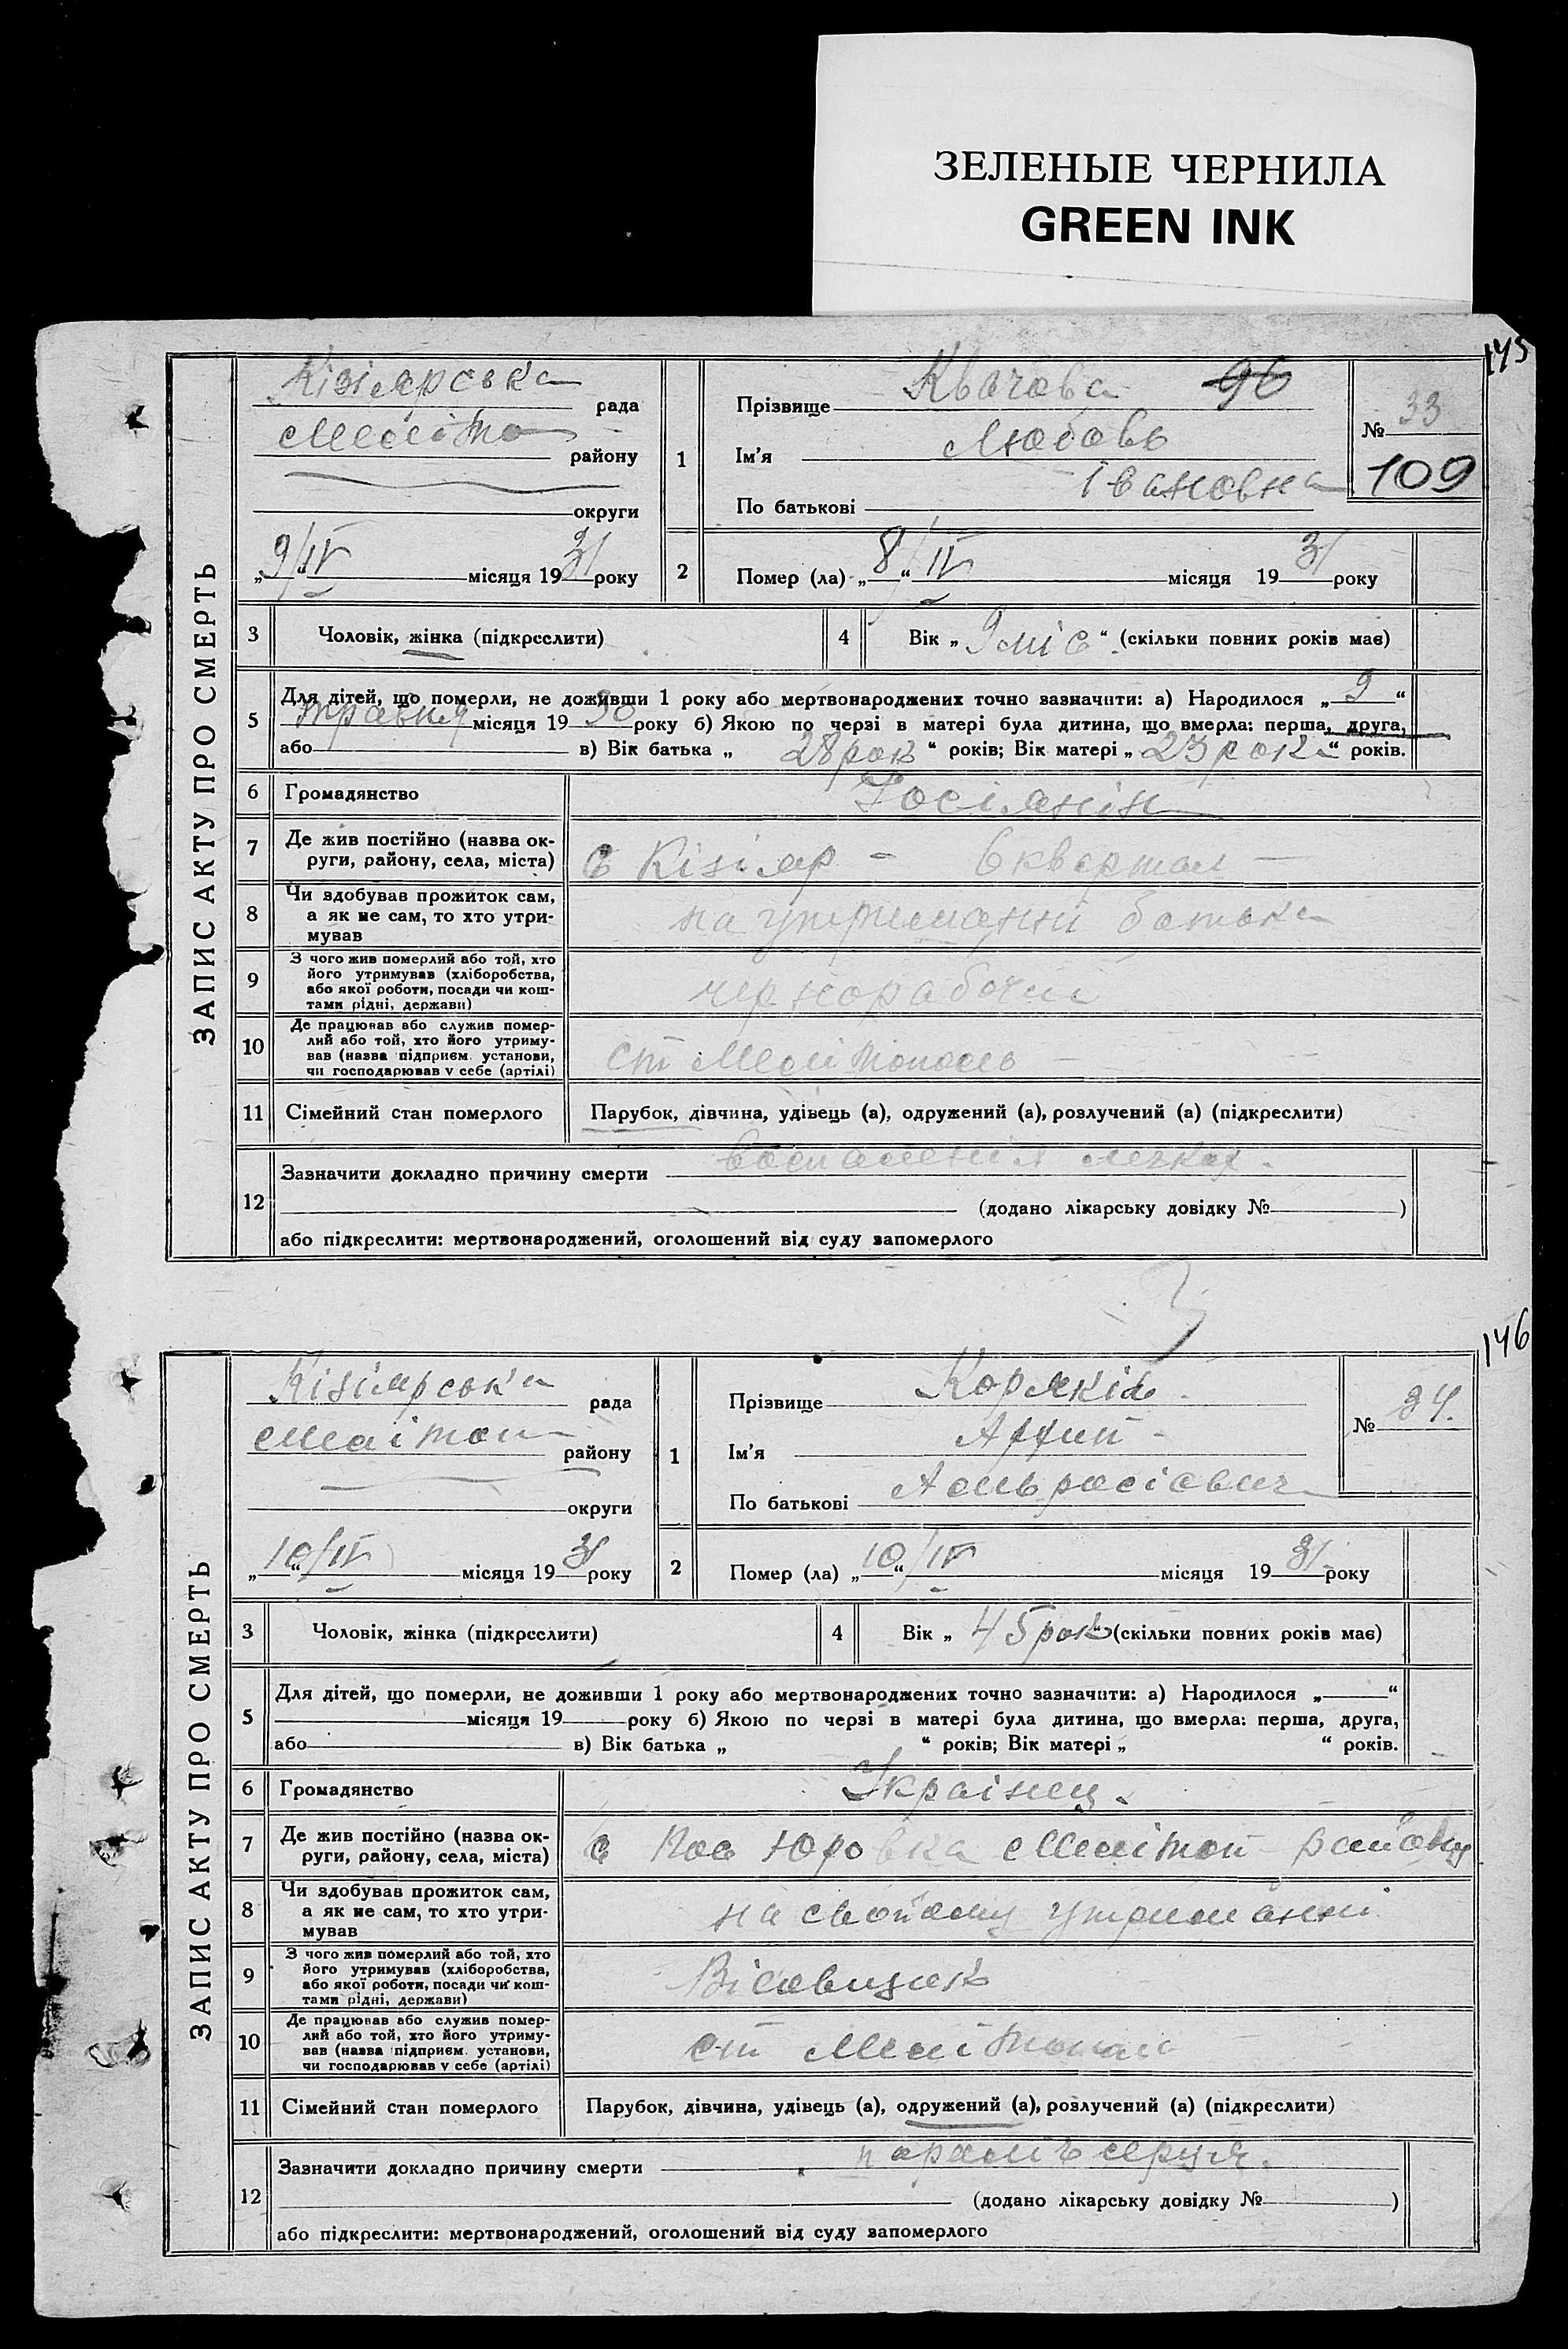 ЗЕЛЕНЫЕ ЧЕРНИЛА
GREEN INK
145
ЗАПИС АКТУ ПРО СМЕРТЬ
Кізіярська рада
Меліто району
округи
„9/IV“ місяця 1931 року
1
Прізвище Квачова 96
Ім'я Любовь
По батькові Івановна
№ 33
109
2 Помер (ла) „8“/IV місяця 1931 року
3 Чоловік, жінка (підкреслити)
4 Вік „9 міс“ (скільки повних років має)
5 Для дітей, що померли, не доживши 1 року або мертвонароджених точно зазначити: а) Народилося „9“
травня місяця 1930 року б) Якою по черзі в матері була дитина, що вмерла: перша, друга,
або в) Вік батька „28 рок“ років; Вік матері „23 рока“ років.
6 Громадянство Росіянін
7 Де жив постійно (назва ок-
руги, району, села, міста) с Кізіяр - 6 квартал
8 Чи здобував прожиток сам,
а як не сам, то хто утри-
мував на утриманні батька
9 З чого жив померлий або той, хто
його утримував (хліборобства,
або якої роботи, посади чи кош-
тами рідні, держави) чернорабочий
10 Де працював або служив помер-
лий або той, хто його утриму-
вав (назва підприєм. установи,
чи господарював у себе (артілі) ст Мелітополь
11 Сімейний стан померлого Парубок, дівчина, удівець (а), одружений (а), розлучений (а) (підкреслити)
12 Зазначити докладно причину смерти воспаления легких.
(додано лікарську довідку № )
або підкреслити: мертвонароджений, оголошений від суду запомерлого
146
ЗАПИС АКТУ ПРО СМЕРТЬ
Кізіярська рада
Мелітоп району
округи
„10“/IV місяця 1931 року
1
Прізвище Корякін
Ім'я
По батькові
№ 34.
2 Помер (ла) „10“/IV місяця 1931 року
3 Чоловік, жінка (підкреслити)
4 Вік „45 рок“ (скільки повних років має)
5 Для дітей, що померли, не доживши 1 року або мертвонароджених точно зазначити: а) Народилося „ “
місяця 19 року б) Якою по черзі в матері була дитина, що вмерла: перша, друга,
або в) Вік батька „ “ років; Вік матері „ “ років.
6 Громадянство Українец.
7 Де жив постійно (назва ок-
руги, району, села, міста) с Юровка Мелітоп району
8 Чи здобував прожиток сам,
а як не сам, то хто утри-
мував на свойому утриманні
9 З чого жив померлий або той, хто
його утримував (хліборобства,
або якої роботи, посади чи кош-
тами рідні, держави)
10 Де працював або служив помер-
лий або той, хто його утриму-
вав (назва підприєм. установи,
чи господарював у себе (артілі) ст Мелітополь
11 Сімейний стан померлого Парубок, дівчина, удівець (а), одружений (а), розлучений (а) (підкреслити)
12 Зазначити докладно причину смерти параліч серця.
(додано лікарську довідку № )
або підкреслити: мертвонароджений, оголошений від суду запомерлого